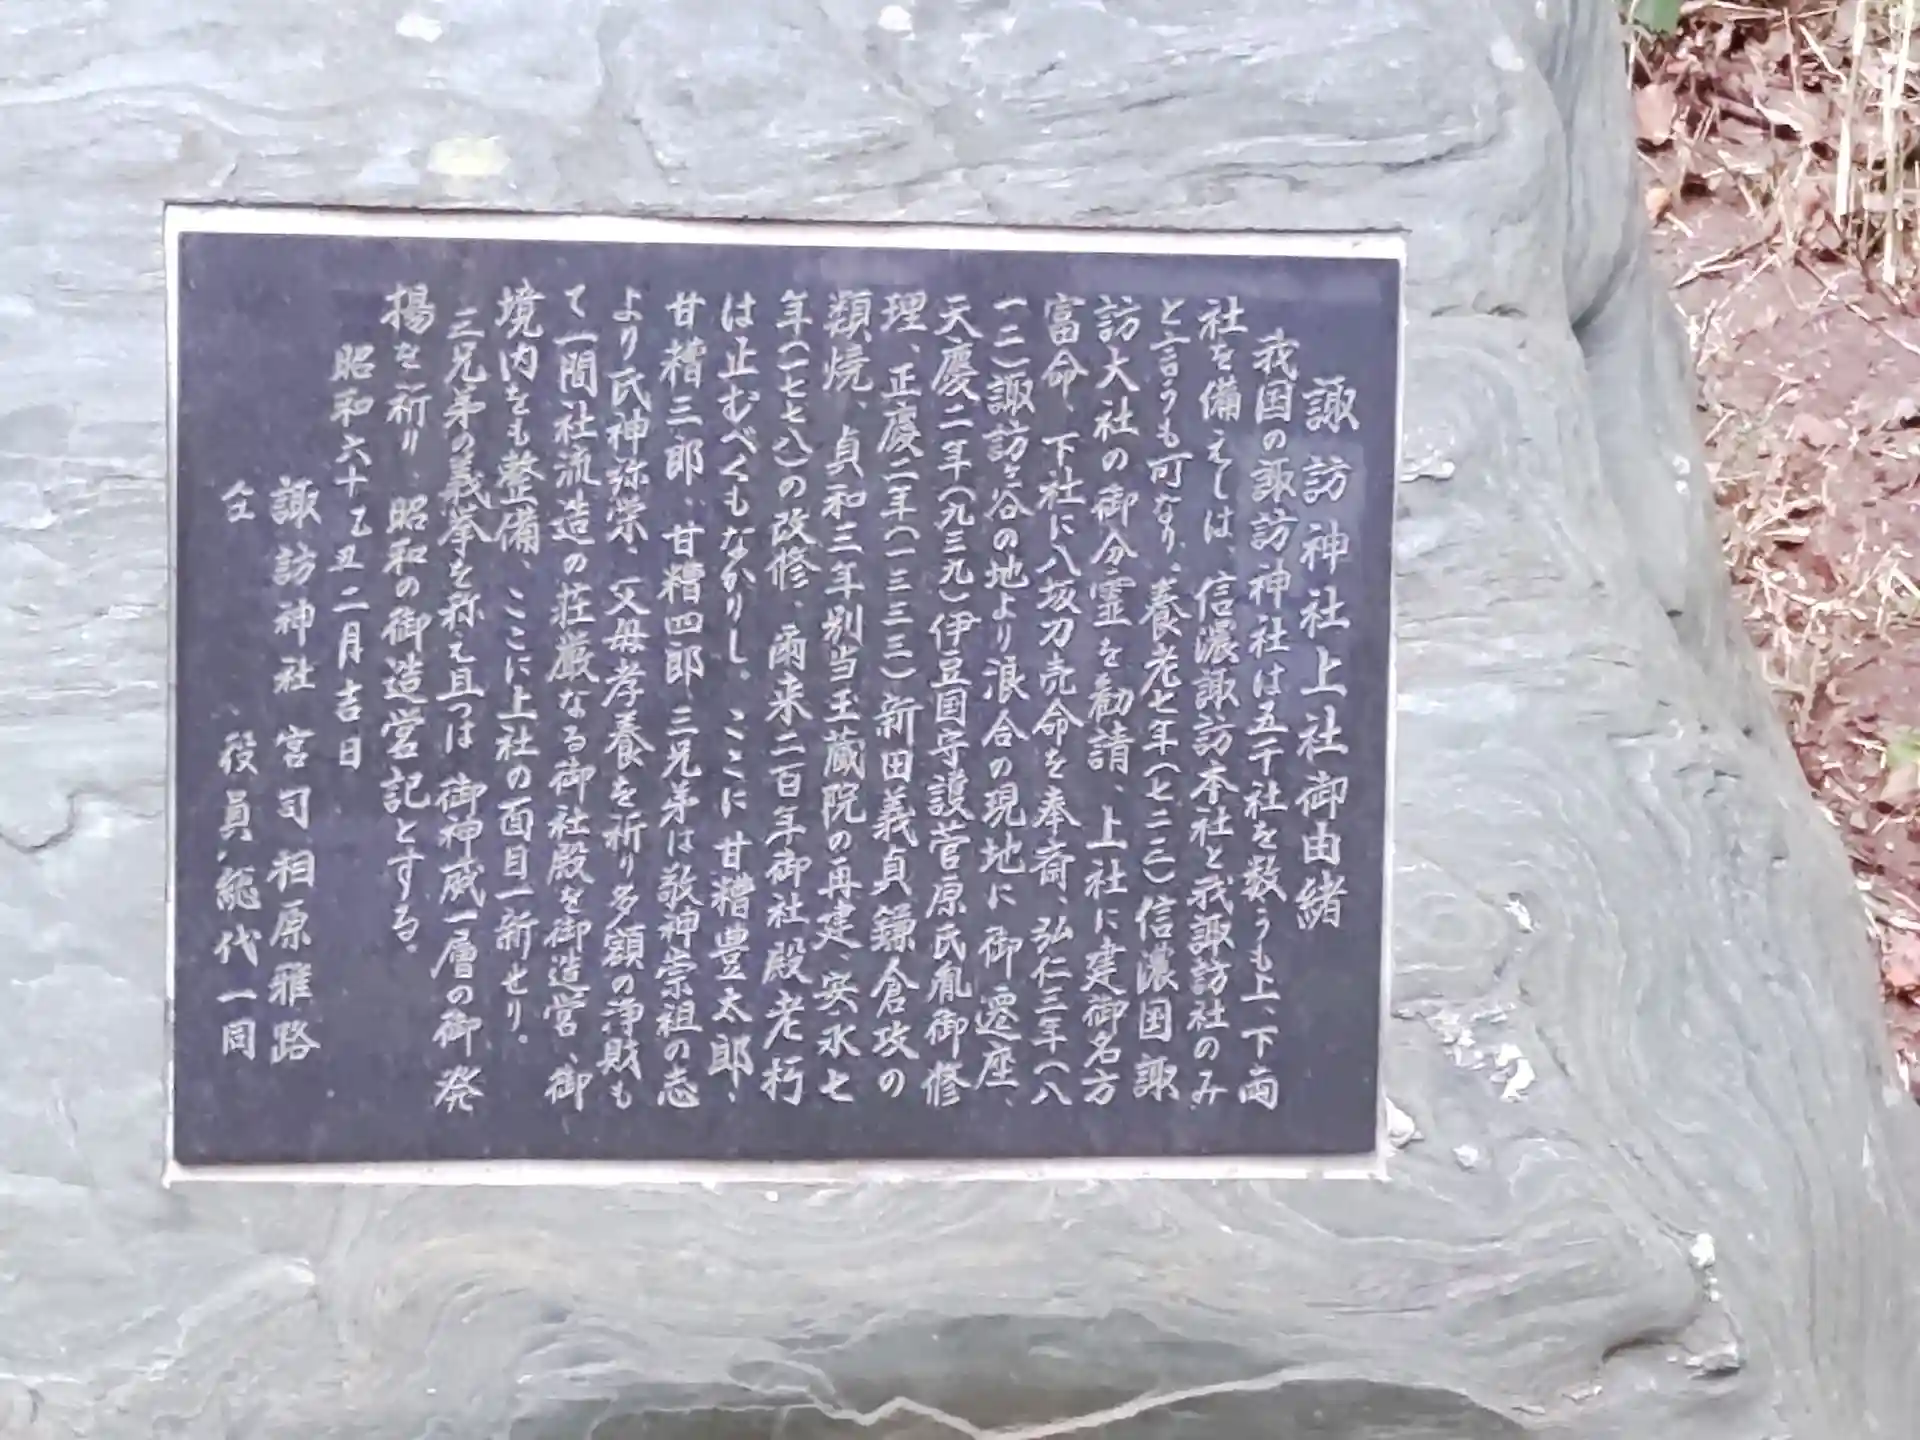 諏訪神社上社御由緒
我国の諏訪神社は五千社を数うも上、下両
社を備えしは、信濃諏訪本社と我諏訪社のみ
と言うも可なり、養老七年（七二三）信濃国諏
訪大社の御分霊を勧請、上社に建御名方
富命、下社に八坂刀売命を奉斎、弘仁三年（八
一二）諏訪ヶ谷の地より浪合の現地に御遷座、
天慶二年（九三九）伊豆国守護菅原氏胤御修
理、正慶二年（一三三三）新田義貞鎌倉攻の
類焼、貞和三年別当玉蔵院の再建、安永七
年（一七七八）の改修、爾来二百年御社殿老朽
は止むべくもなかりし。ここに甘糟豊太郎、
甘糟三郎、甘糟四郎三兄弟は敬神崇祖の志
より氏神弥栄、父母孝養を祈り多額の浄財も
て一間社流造の荘厳なる御社殿を御造営、御
境内をも整備、ここに上社の面目一新せり。
三兄弟の義挙を称え且つは御神威一層の御発
揚を祈り昭和の御造営記とする。
昭和六十乙丑二月吉日
諏訪神社 宮司 相原雅路
仝 役員、総代一同